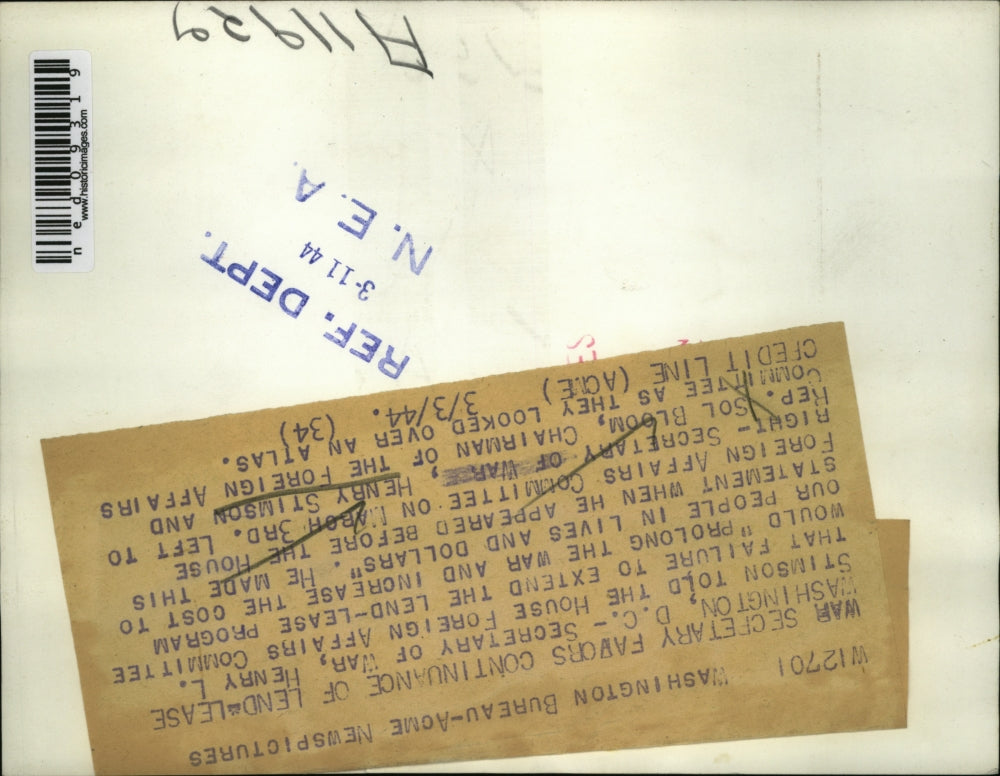 A11929
n e d 0 9 3 1 9
www.historicimages.com
REF. DEPT.
3-11 44
N. E. A.
W12701 WASHINGTON BUREAU-ACME NEWSPICTURES
WAR SECRETARY FAVORS CONTINUANCE OF LEND-LEASE
WASHINGTON, D.C. - SECRETARY OF WAR, HENRY L.
STIMSON TOLD, THE HOUSE FOREIGN AFFAIRS COMMITTEE
THAT FAILURE TO EXTEND THE LEND-LEASE PROGRAM
WOULD "PROLONG THE WAR AND INCREASE THE COST TO
OUR PEOPLE IN LIVES AND DOLLARS". HE MADE THIS
STATEMENT WHEN HE APPEARED BEFORE THE HOUSE
FOREIGN AFFAIRS COMMITTEE ON MARCH 3RD. LEFT TO
RIGHT- SECRETARY OF WAR, HENRY STIMSON AND
REP. SOL BLOOM, CHAIRMAN OF THE FOREIGN AFFAIRS
COMMITTEE AS THEY LOOKED OVER AN ATLAS.
CREDIT LINE (ACME) 3/3/44. (34)